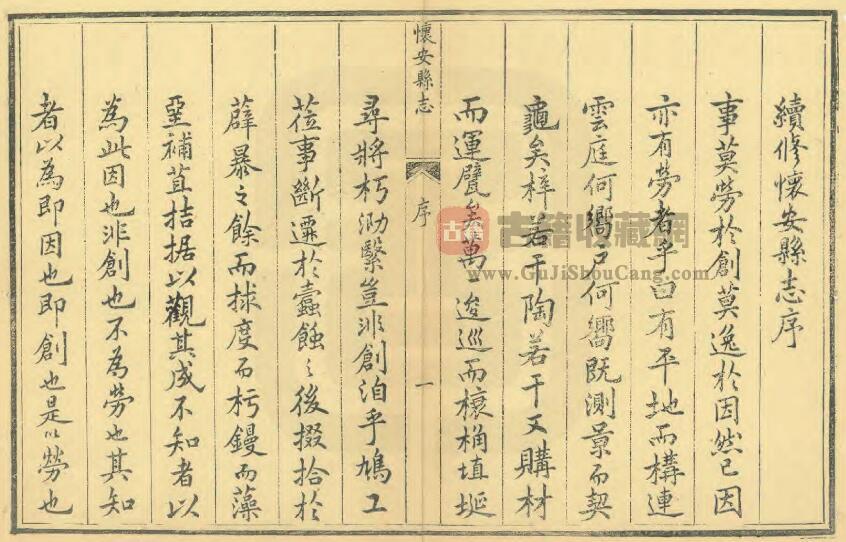 續修懷安縣志序
事莫勞於創莫逸於因然已因
亦有勞者乎曰有平地而構連
雲庭何嚮戶何嚮既測景而契
龜矣梓若干陶若干又購材
而運甓矣萬一逡巡而榱桷埴埏
尋將朽泐繫豈非創洎乎鳩工
蒞事斷遷於蠹蝕之後掇拾於
薜暴之餘而捄度而杇鏝而藻
堊補苴拮据以觀其成不知者以
為此因也非創也不為勞也其知
者以為即因也即創也是以勞也
懷安縣志
序
一
古籍
古籍收藏網
www.GuJiShouCang.com